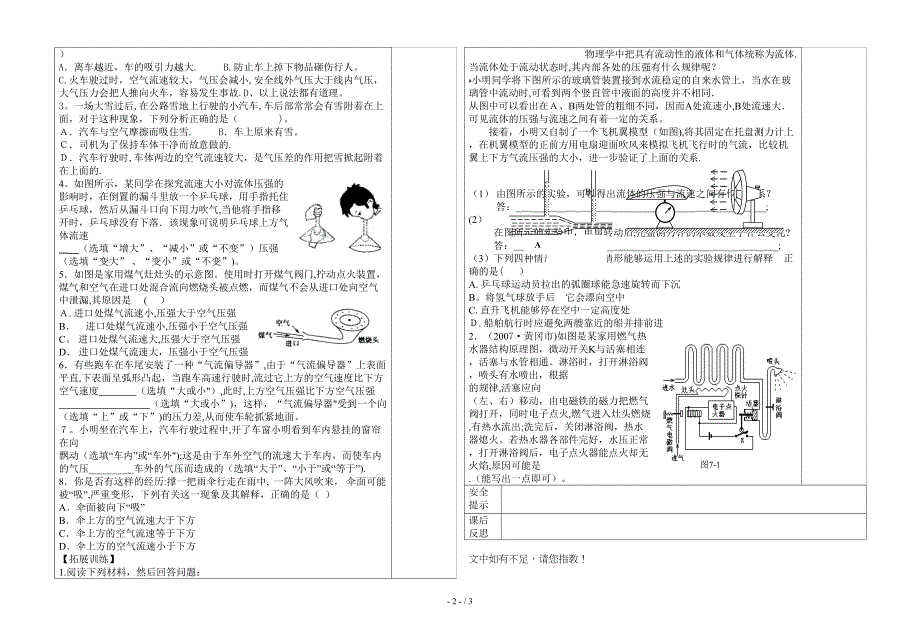 ）
A．离车越近，车的吸引力越大. B.防止车上掉下物品砸伤行人。
C.火车驶过时，空气流速较大，气压会减小,安全线外气压大于线内气压，
大气压力会把人推向火车，容易发生事故.D、以上说法都有道理.
3。一场大雪过后,在公路雪地上行驶的小汽车,车后部常常会有雪附着在上
面，对于这种现象，下列分析正确的是（ ）。
Ａ．汽车与空气摩擦而吸住雪. B．车上原来有雪。
C．司机为了保持车体干净而故意做的.
Ｄ．汽车行驶时,车体两边的空气流速较大，是气压差的作用把雪掀起附着
在上面的.
4。如图所示，某同学在探究流速大小对流体压强的
影响时，在倒置的漏斗里放一个乒乓球，用手指托住
乒乓球，然后从漏斗口向下用力吹气,当他将手指移
开时，乒乓球没有下落．该现象可说明乒乓球上方气
体流速
____(选填“增大”、“减小”或“不变”）压强
(选填“变大” 、“变小”或“不变”)。
5．如图是家用煤气灶灶头的示意图。使用时打开煤气阀门,拧动点火装置，
煤气和空气在进口处混合流向燃烧头被点燃，而煤气不会从进口处向空气
中泄漏,其原因是 ( )
Ａ.进口处煤气流速小,压强大于空气压强
B． 进口处煤气流速小,压强小于空气压强
C。 进口处煤气流速大,压强大于空气压强
D． 进口处煤气流速大，压强小于空气压强
空气
煤气
进口
燃烧头
6．有些跑车在车尾安装了一种“气流偏导器”,由于“气流偏导器”上表面
平直,下表面呈弧形凸起，当跑车高速行驶时,流过它上方的空气速度比下方
空气速度_______（选填“大或小"）,此时,上方空气压强比下方空气压强
________________（选填“大或小”），这样，“气流偏导器"受到一个向
(选填“上”或“下”)的压力差,从而使车轮抓紧地面。
７。小明坐在汽车上，汽车行驶过程中,开了车窗小明看到车内悬挂的窗帘
在向
飘动(选填“车内”或“车外”);这是由于车外空气的流速大于车内，而使车内
的气压________车外的气压而造成的（选填“大于”、“小于”或“等于”).
8．你是否有这样的经历:撑一把雨伞行走在雨中, 一阵大风吹来， 伞面可能
被“吸”,严重变形，下列有关这一现象及其解释，正确的是（ ）
A．伞面被向下“吸”
B．伞上方的空气流速大于下方
C．伞上方的空气流速等于下方
D．伞上方的空气流速小于下方
【拓展训练】
1.阅读下列材料，然后回答问题:
物理学中把具有流动性的液体和气体统称为流体.
当流体处于流动状态时,其内部各处的压强有什么规律呢?
•小明同学将下图所示的玻璃管装置接到水流稳定的自来水管上，当水在玻
璃管中流动时,可看到两个竖直管中液面的高度并不相同．
从图中可以看出在Ａ、B两处管的粗细不同，因而A处流速小,B处流速大．
可见流体的压强与流速之间有着一定的关系。
接着，小明又自制了一个飞机翼模型（如图),将其固定在托盘测力计上
，在机翼模型的正前方用电扇迎面吹风来模拟飞机飞行时的气流，比较机
翼上下方气流压强的大小，进一步验证了上面的关系.
（1） 由图所示的实验，可以得出流体的压强与流速之间有什么关系?
答: ;
(2)
在图所示的实验中，电扇转动后,托盘测力计的示数发生了什么变化?
答: ;
A
（3）下列四种情 情形能够运用上述的实验规律进行解释 正
确的是( )
A.乒乓球运动员拉出的弧圈球能急速旋转而下沉
B。将氢气球放手后 它会漂向空中
C.直升飞机能够停在空中一定高度处
Ｄ.船舶航行时应避免两艘靠近的船并排前进
2．（2007·黄冈市)如图是某家用燃气热
水器结构原理图，微动开关K与活塞相连
，活塞与水管相通。淋浴时，打开淋浴阀
，喷头有水喷出，根据
的规律,活塞应向
（左、右）移动，由电磁铁的磁力把燃气
阀打开，同时电子点火,燃气进入灶头燃烧
,有热水流出;洗完后，关闭淋浴阀，热水
器熄火。若热水器各部件完好，水压正常
，打开淋浴阀后，电子点火器能点火却无
火焰,原因可能是
.（能写出一点即可）。
喷头
进水
灶头
点火探针
电子点火器
活塞
淋浴阀
燃气电磁阀
K
进气
图7-1
安全
提示
课后
反思
文中如有不足，请您指教！
- 2 - / 3